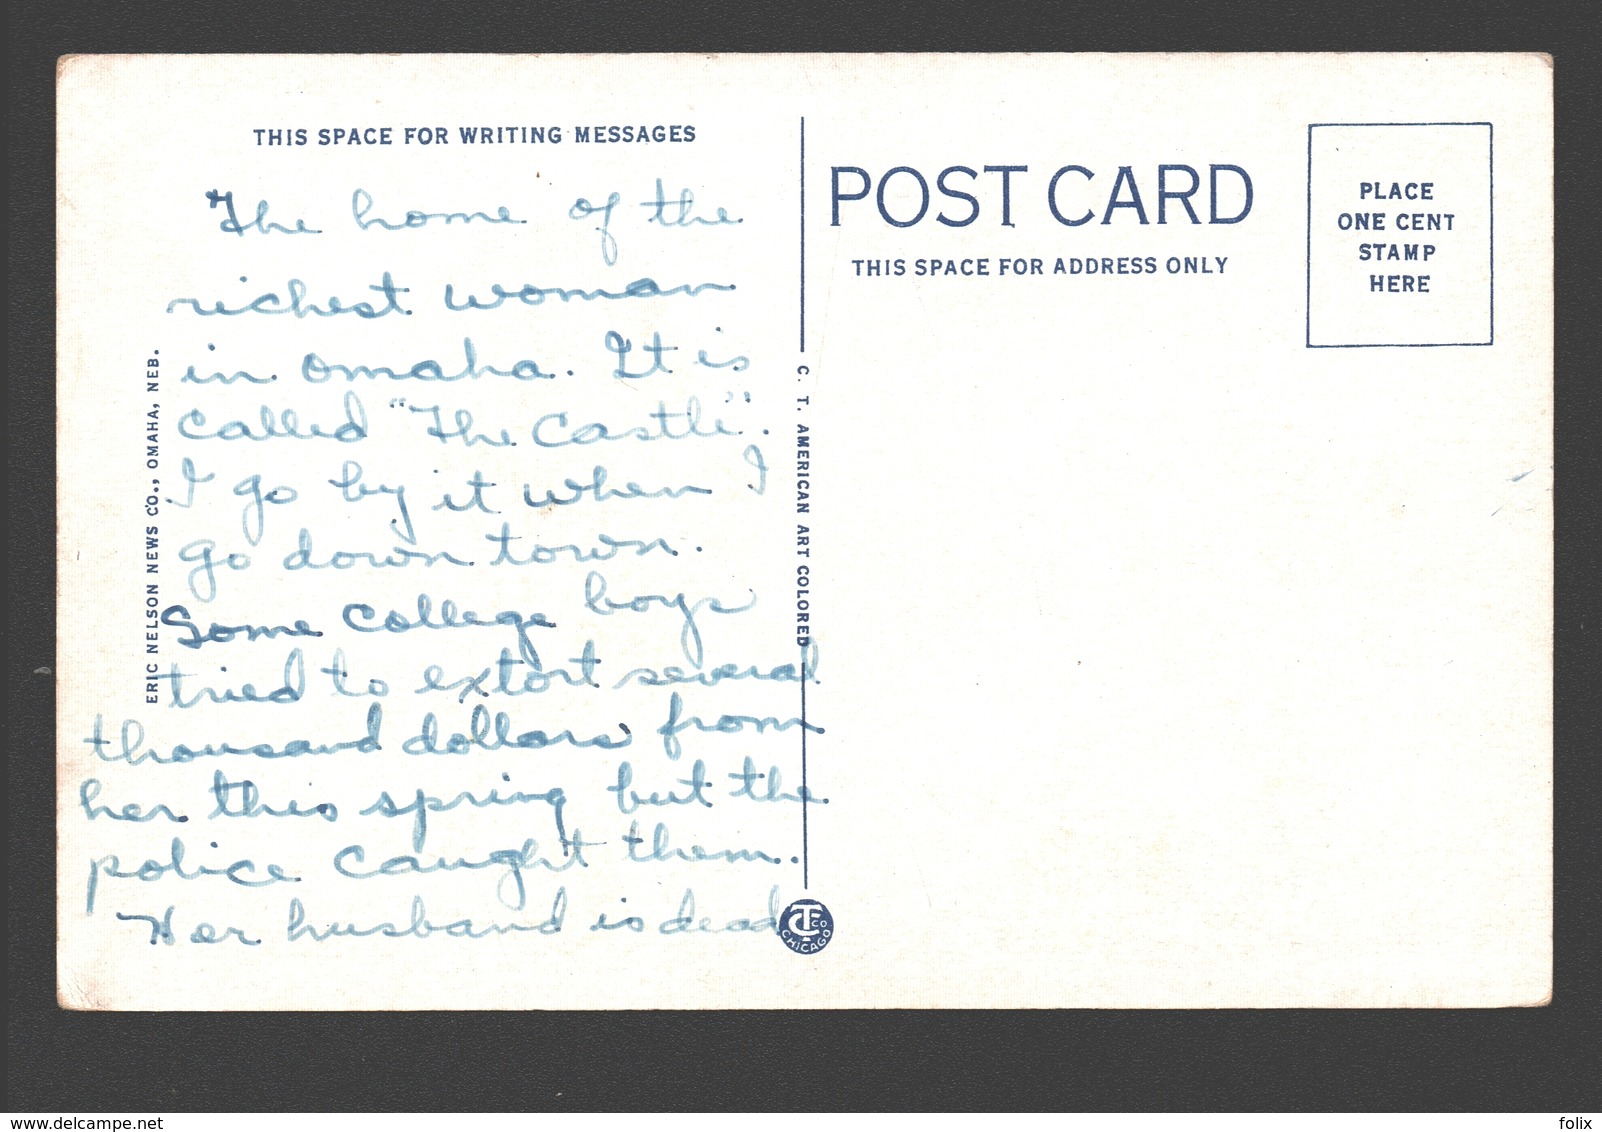 THIS SPACE FOR WRITING MESSAGES
The home of the
richest woman
in Omaha. It is
called "The Castle".
I go by it when I
go down town.
Some college boys
tried to extort several
thousand dollars from
her this spring but the
police caught them.
Her husband is dead
ERIC NELSON NEWS CO., OMAHA, NEB.
C. T. AMERICAN ART COLORED
CT CO
CHICAGO
POST CARD
THIS SPACE FOR ADDRESS ONLY
PLACE
ONE CENT
STAMP
HERE
www.delcampe.net
folix